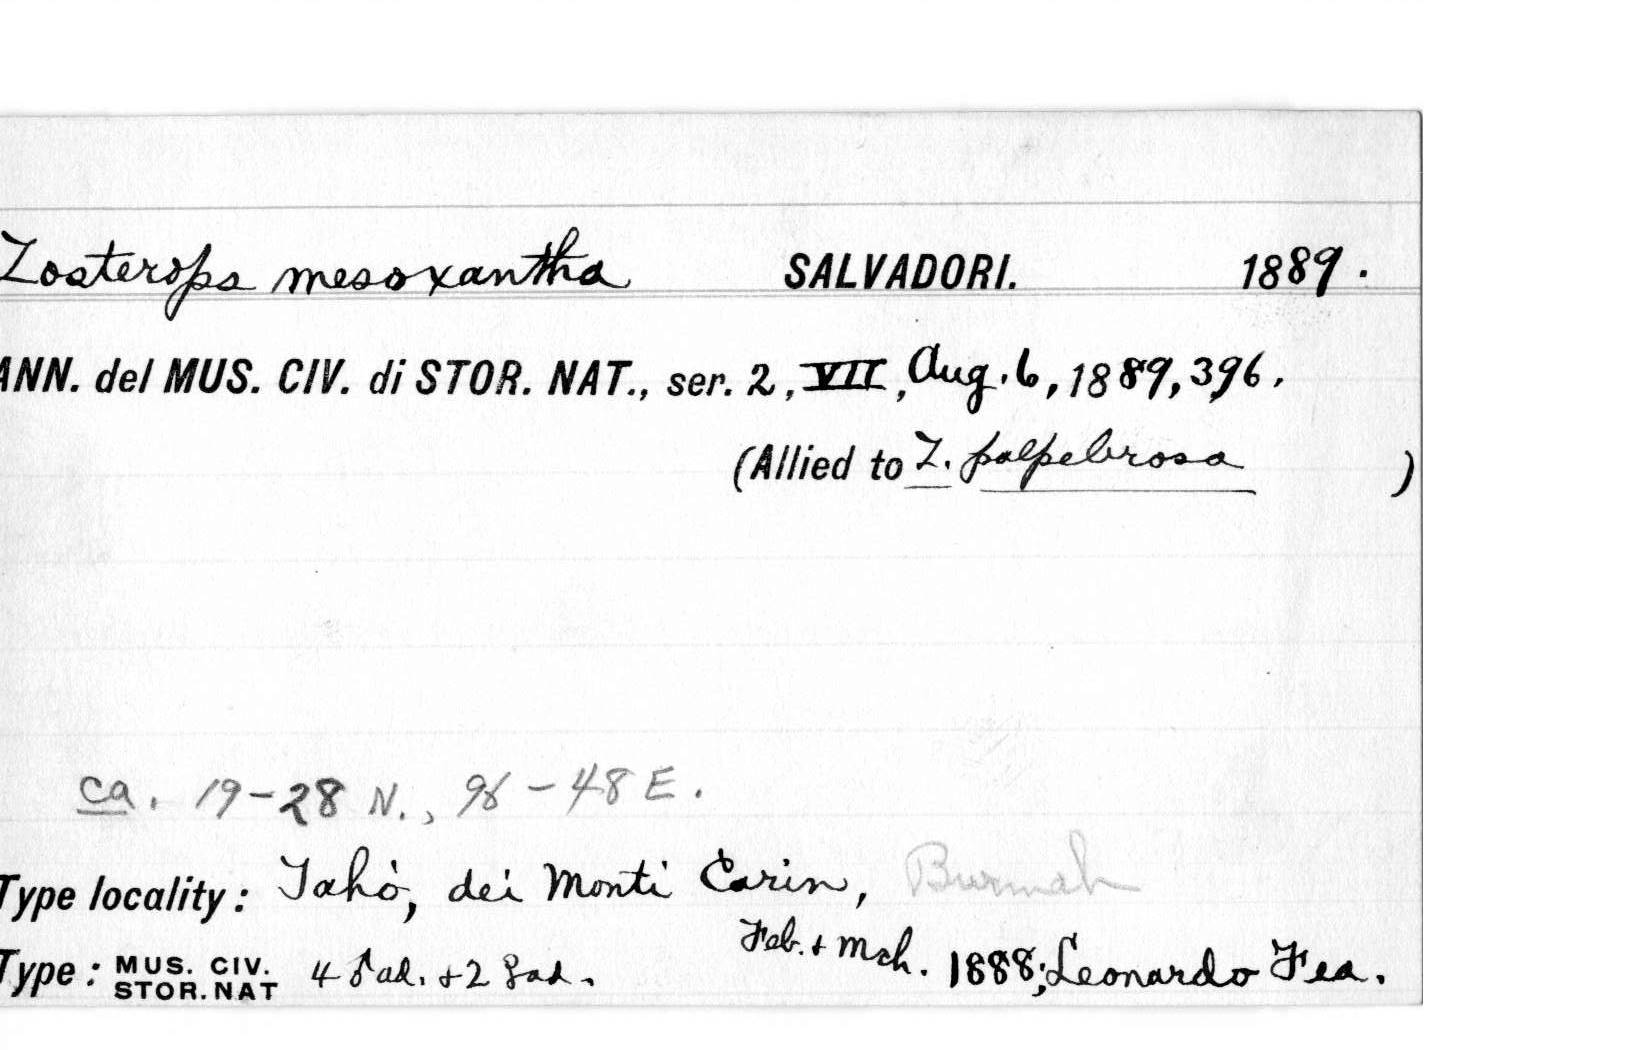 Zosterops mesoxantha SALVADORI. 1889.
ANN. del MUS. CIV. di STOR. NAT., ser. 2, VII, Aug. 6, 1889, 396.
(Allied to Z. palpebrosa )
ca. 19-28 N., 96-48 E.
Type locality: Tahò, dei Monti Carin, Burmah
Feb. & Mch. 1888; Leonardo Fea.
Type: MUS. CIV. STOR. NAT 4 ♂ ad. & 2 ♀ ad.